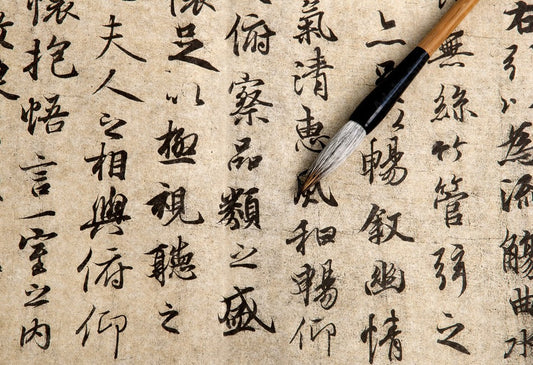 右引以為流觴曲水
無絲竹管弦之
亦足以暢敘幽情
氣清惠風和暢仰
俯察品類之盛
懷足以極視聽之
夫人之相與俯仰
懷抱悟言一室之內